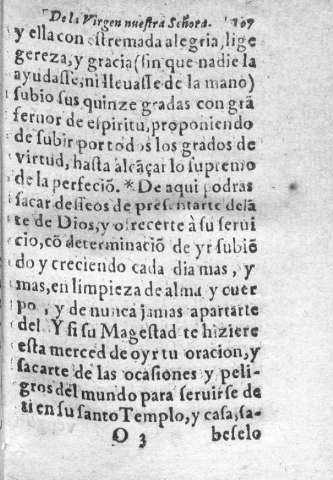 De la Virgen nuestra Señora. 107
y ella con estremada alegria, lige
gereza, y gracia (sin que nadie la
ayudasse, ni lleuasse de la mano)
subio sus quinze gradas con grã
feruor de espiritu, proponiendo
de subir por todos los grados de
virtud, hasta alcãçar lo supremo
de la perfeciõ. * De aqui podras
sacar desseos de presentarte delã
te de Dios, y ofrecerte à su serui
cio, cõ determinaciõ de yr subiẽ
do y creciendo cada dia mas, y
mas, en limpieza de alma y cuer
po, y de nunca jamas apartarte
del. Y si su Magestad te hiziere
esta merced de oyr tu oracion, y
sacarte de las ocasiones y peli-
gros del mundo para seruirse de
ti en su santo Templo, y casa, sa-
O 3 beselo